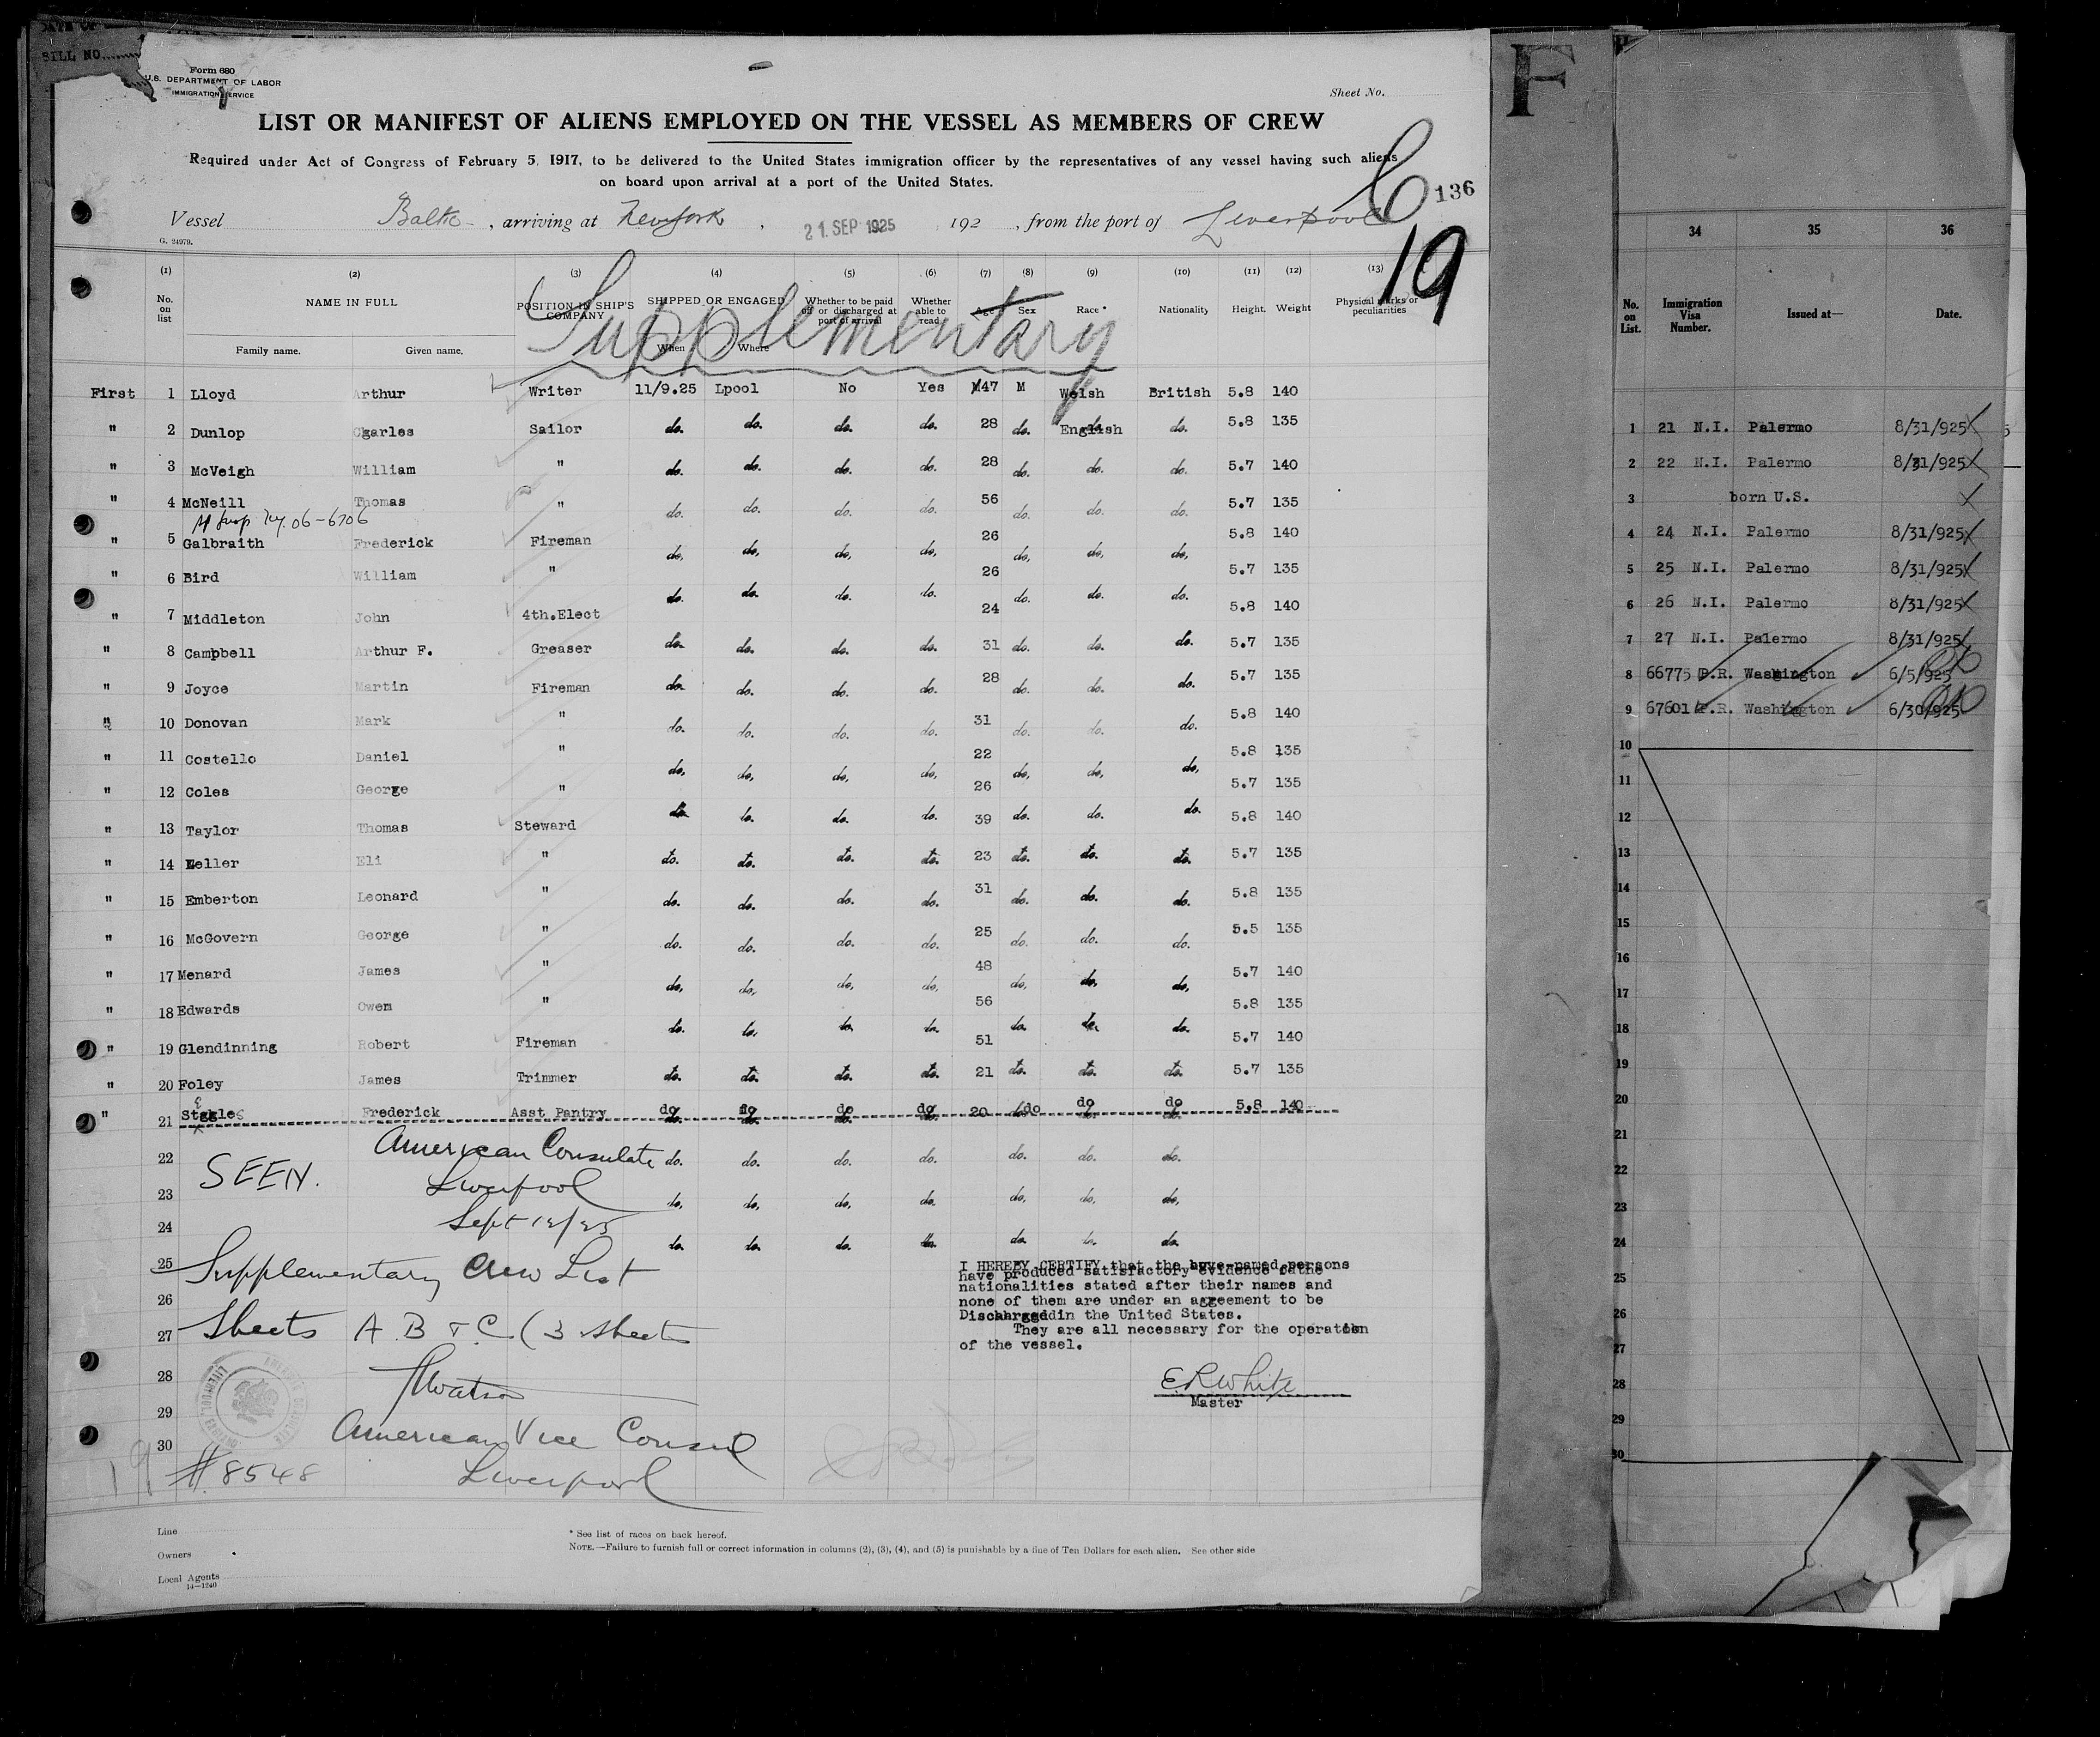 BILL NO.
Form 680
U.S. DEPARTMENT OF LABOR
IMMIGRATION SERVICE
Sheet No.
LIST OR MANIFEST OF ALIENS EMPLOYED ON THE VESSEL AS MEMBERS OF CREW
Required under Act of Congress of February 5, 1917, to be delivered to the United States immigration officer by the representatives of any vessel having such aliens
on board upon arrival at a port of the United States.
C 136
19
Vessel Baltic, arriving at New York, 21 SEP 1925 192 , from the port of Liverpool
G. 24979.
(1) (2) (3) (4) (5) (6) (7) (8) (9) (10) (11) (12) (13)
No. on list NAME IN FULL POSITION IN SHIP'S COMPANY SHIPPED OR ENGAGED Whether to be paid off or discharged at port of arrival Whether able to read Age Sex Race * Nationality Height. Weight Physical marks or peculiarities
Family name. Given name. When Where
Supplementary
First 1 Lloyd Arthur Writer 11/9.25 Lpool No Yes 47 M Welsh British 5.8 140
" 2 Dunlop Charles Sailor do. do. do. do. 28 do. English do. 5.8 135
" 3 McVeigh William " do. do. do. do. 28 do. do. do. 5.7 140
" 4 McNeill Thomas " do. do. do. do. 56 do. do. do. 5.7 135
06-6706
" 5 Galbraith Frederick Fireman do. do. do. do. 26 do. do. do. 5.8 140
" 6 Bird William " do. do. do. do. 26 do. do. do. 5.7 135
" 7 Middleton John 4th.Elect 24 5.8 140
" 8 Campbell Arthur F. Greaser do. do. do. do. 31 do. do. do. 5.7 135
" 9 Joyce Martin Fireman do. do. do. do. 28 do. do. do. 5.7 135
" 10 Donovan Mark " do. do. do. do. 31 do. do. do. 5.8 140
" 11 Costello Daniel " do. do. do. do. 22 do. do. do. 5.8 135
" 12 Coles George " 26 5.7 135
" 13 Taylor Thomas Steward do. do. do. do. 39 do. do. do. 5.8 140
" 14 Keller Eli " do. do. do. do. 23 do. do. do. 5.7 135
" 15 Emberton Leonard " do. do. do. do. 31 do. do. do. 5.8 135
" 16 McGovern George " do. do. do. do. 25 do. do. do. 5.5 135
" 17 Menard James " do. do. do. do. 48 do. do. do. 5.7 140
" 18 Edwards Owen " do. do. do. do. 56 do. do. do. 5.8 135
" 19 Glendinning Robert Fireman 51 5.7 140
" 20 Foley James Trimmer do. do. do. do. 21 do. do. do. 5.7 135
" 21 Frederick Asst Pantry do do do do 20 do do do 5.8 140
22 do. do. do. do. do. do. do.
23 do. do. do. do. do. do. do.
24 do. do. do. do. do. do. do.
25
26
27
28
29
30
SEEN. American Consulate
Liverpool
Sept 12/25
Supplementary Crew List
Sheets A B & C. (3 sheets
Watson
American Vice Consul
Liverpool
#8548
19
I HEREBY CERTIFY that the above-named persons
have produced satisfactory evidence of the
nationalities stated after their names and
none of them are under an agreement to be
Discharged in the United States.
They are all necessary for the operation
of the vessel.
E.R.White
Master
Line
Owners
Local Agents
14—1240
* See list of races on back hereof.
NOTE.—Failure to furnish full or correct information in columns (2), (3), (4), and (5) is punishable by a fine of Ten Dollars for each alien. See other side
F
34 35 36
No. on List. Immigration Visa Number. Issued at— Date.
1 21 N.I. Palermo 8/31/925
2 22 N.I. Palermo 8/31/925
3 born U.S.
4 24 N.I. Palermo 8/31/925
5 25 N.I. Palermo 8/31/925
6 26 N.I. Palermo 8/31/925
7 27 N.I. Palermo 8/31/925
8 66775 P.R. Washington 6/5/925
9 67601 P.R. Washington 6/30/925
10
11
12
13
14
15
16
17
18
19
20
21
22
23
24
25
26
27
28
29
30